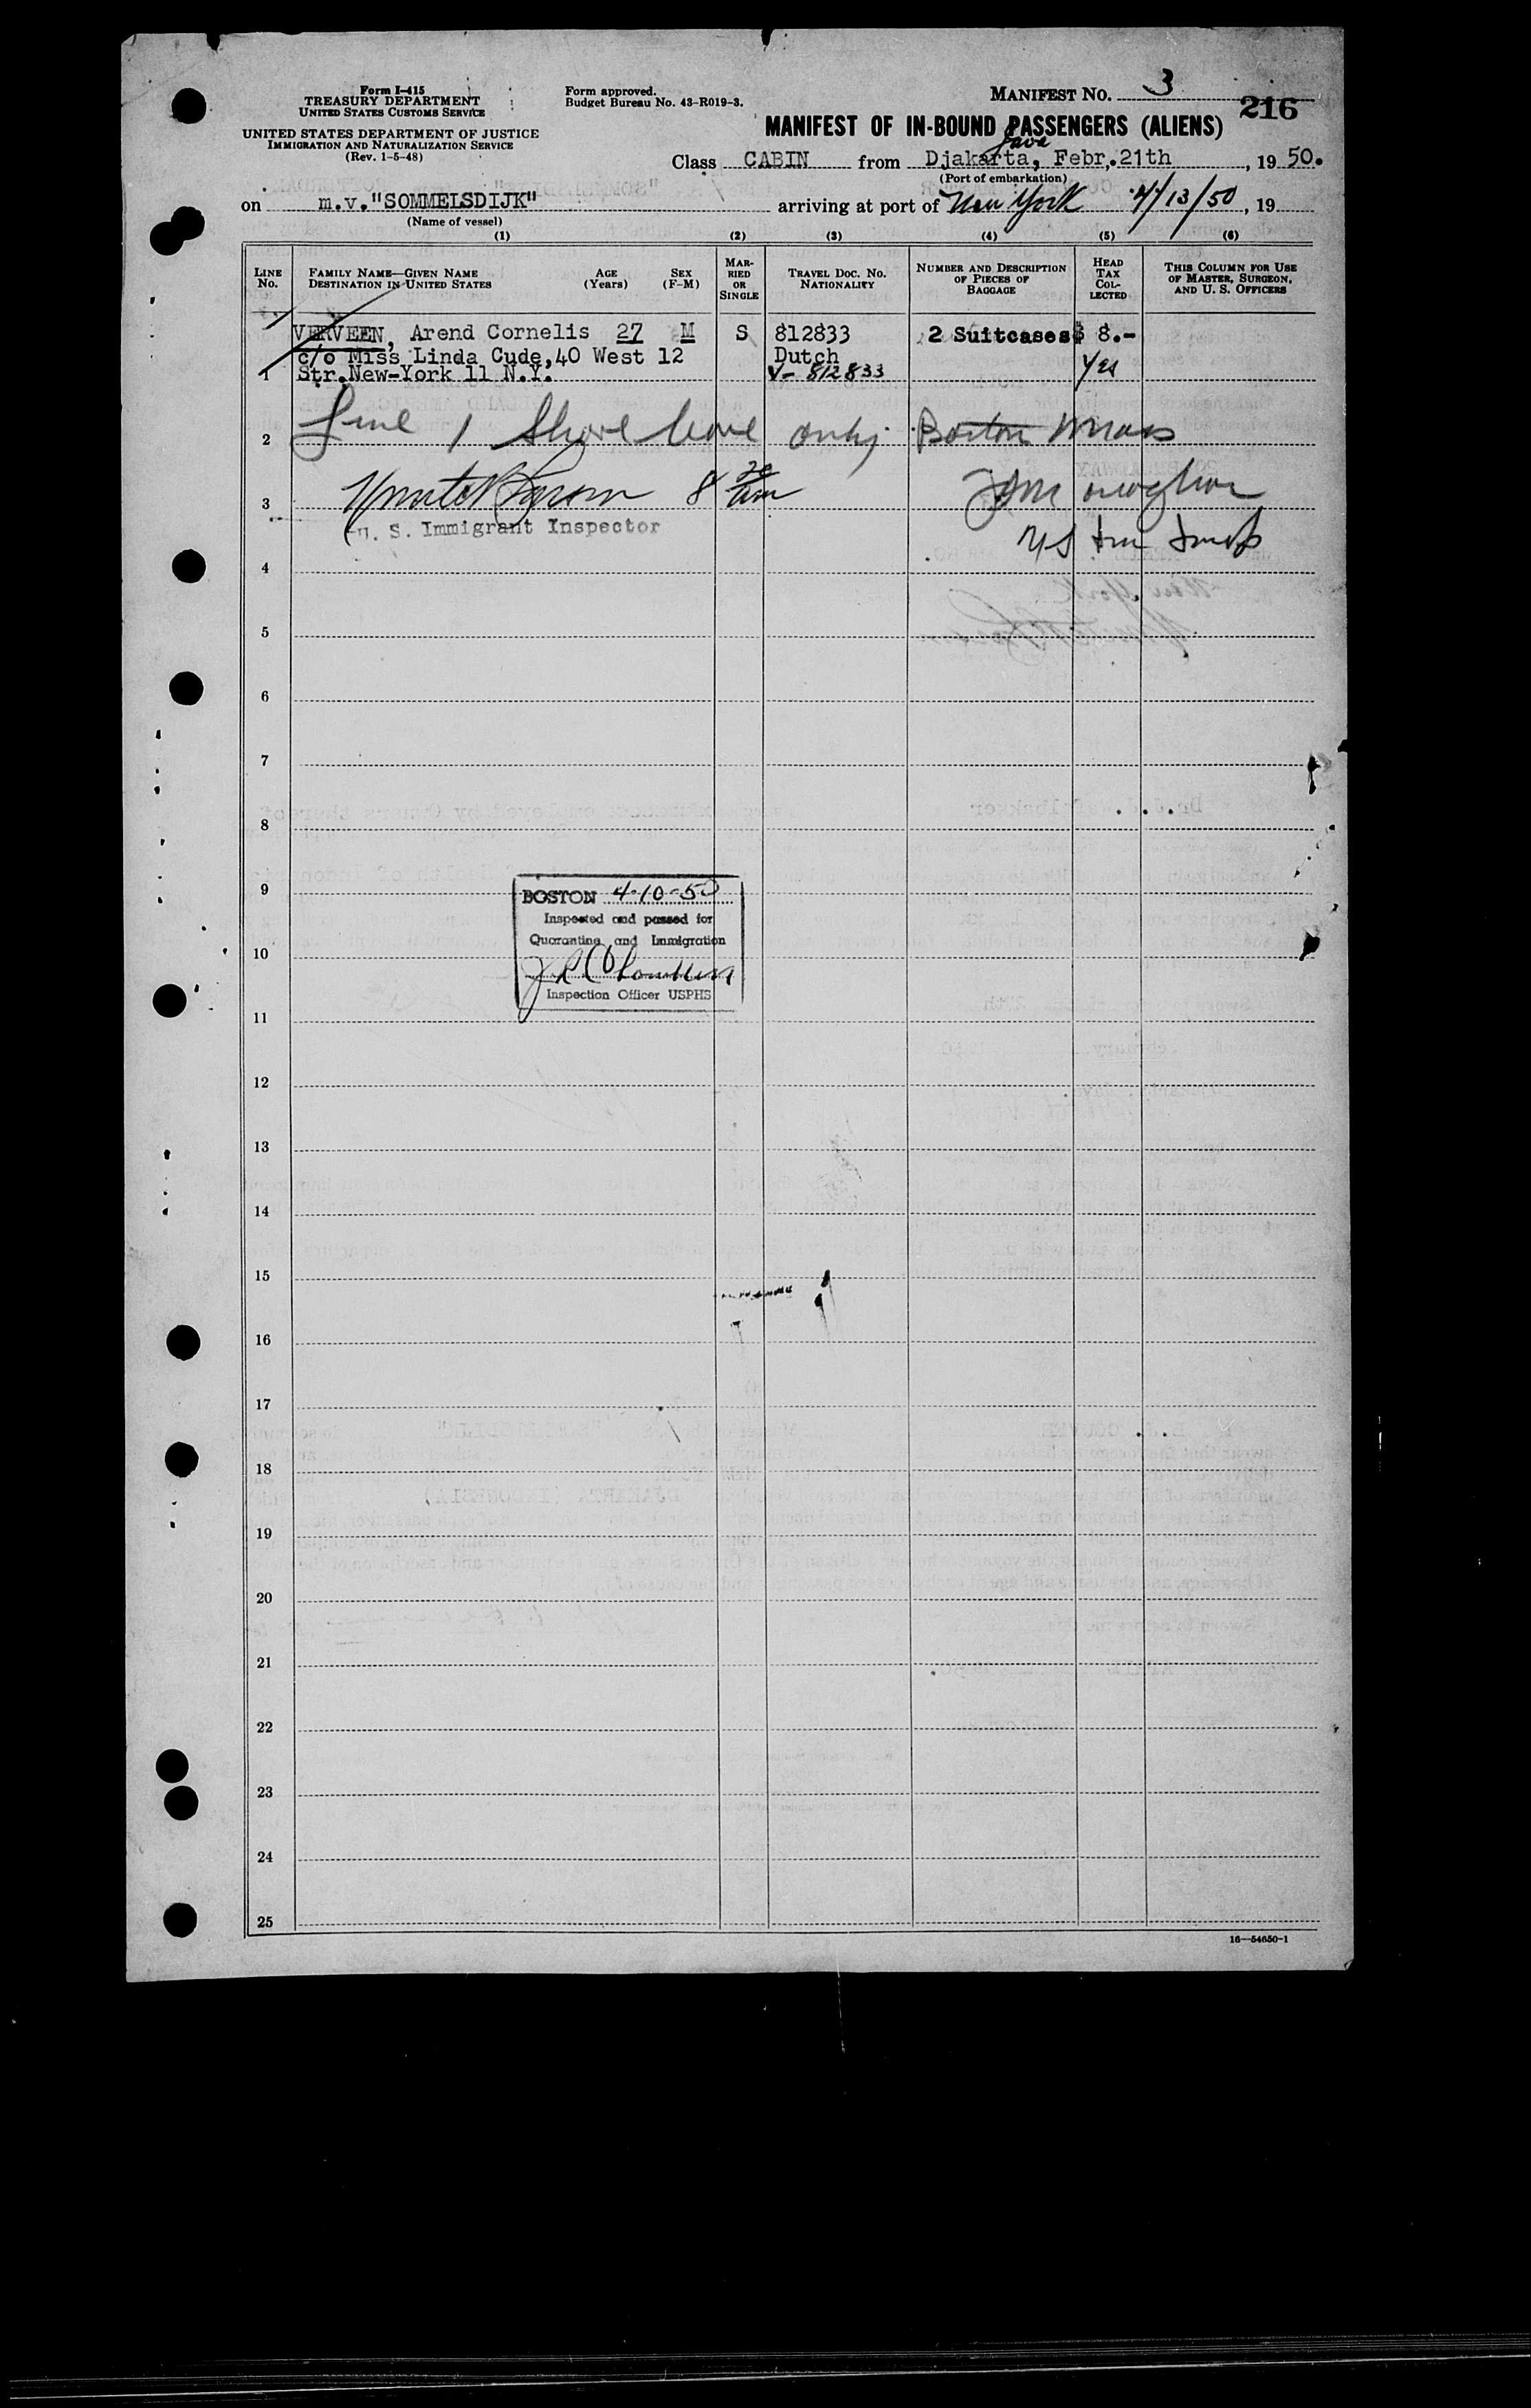 Form I-415
TREASURY DEPARTMENT
UNITED STATES CUSTOMS SERVICE
UNITED STATES DEPARTMENT OF JUSTICE
IMMIGRATION AND NATURALIZATION SERVICE
(Rev. 1-5-48)
Form approved.
Budget Bureau No. 43-R019-3.
MANIFEST NO. 3
216
MANIFEST OF IN-BOUND PASSENGERS (ALIENS)
Java
Class CABIN from Djakarta, Febr,.21th, 19 50.
(Port of embarkation)
on m.v."SOMMELSDIJK" arriving at port of New York 4/13/50, 19
(Name of vessel)
(1) (2) (3) (4) (5) (6)
LINE No.
FAMILY NAME—GIVEN NAME
DESTINATION IN UNITED STATES
AGE (Years)
SEX (F-M)
MARRIED OR SINGLE
TRAVEL DOC. NO. NATIONALITY
NUMBER AND DESCRIPTION OF PIECES OF BAGGAGE
HEAD TAX COLLECTED
THIS COLUMN FOR USE OF MASTER, SURGEON, AND U. S. OFFICERS
VERVEEN, Arend Cornelis 27 M S 812833 2 Suitcases $ 8.-
c/o Miss Linda Cude,40 West 12 Dutch Yes
1 Str.New-York 11 N.Y. V- 812833
2 Line 1 Shore leave only Boston Mass
3 8 30 am
U. S. Immigrant Inspector
US Imm Insp
4
5
6
7
8
9
BOSTON 4-10-50
Inspected and passed for
Quarantine and Immigration
Inspection Officer USPHS
10
11
12
13
14
15
16
17
18
19
20
21
22
23
24
25
16—54650-1